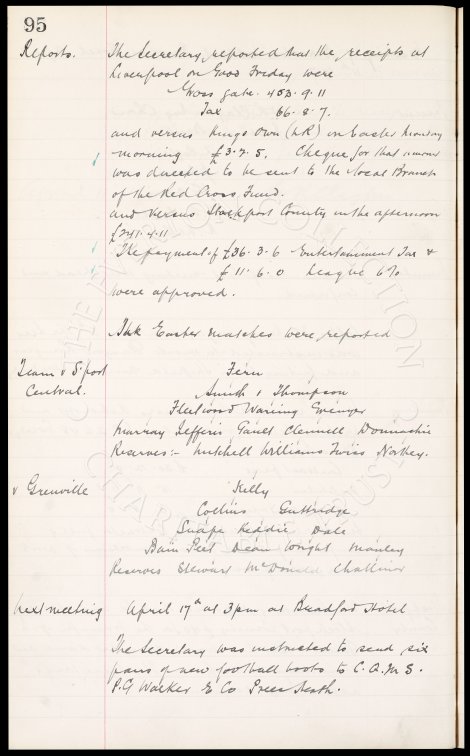 95
Reports. The Secretary, reported that the receipts at
Liverpool on Good Friday were
Gross gate. 453. 9. 11
Tax 66. 8. 7.
and versus Kings Own (LR) on Easter Monday
morning £3. 7. 5. Cheque for that amount
was directed to be sent to the local Branch
of the Red Cross Fund.
and versus Stockport County in the afternoon
£241. 4. 11
The payment of £36. 3. 6 Entertainment Tax &
£11. 6. 0 League 6%
were approved.
The Easter matches were reported
Team v S'port Fern
Central. Smith & Thompson
Fleetwood Waring Grenyer
Murray Jefferis Gault Clennell Donnachie
Reserves:- Mitchell Williams Twiss
v Grenville Kelly
Collins Guttridge
Snape Keddie Dale
Bain Peet Dean Wright Manley
Reserves Stewart McDonald Challinor
Next meeting April 17th at 3pm at Bradford Hotel
The Secretary was instructed to send six
pairs of new football boots to C.Q.M.S.
P.G Walker E Co Prees Heath.
THE EVERTON COLLECTION
CHARITABLE TRUST